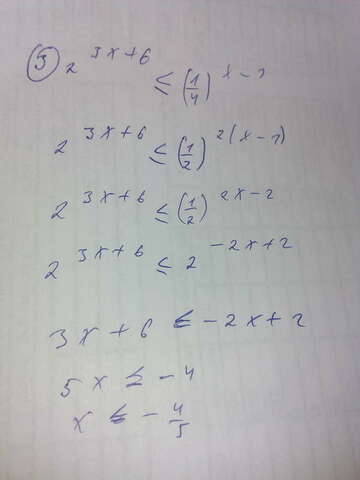 3) 2^{3x+6} ≤ (1/4)^{x-1}
2^{3x+6} ≤ (1/2)^{2(x-1)}
2^{3x+6} ≤ (1/2)^{2x-2}
2^{3x+6} ≤ 2^{-2x+2}
3x+6 ≤ -2x+2
5x ≤ -4
x ≤ -4/5